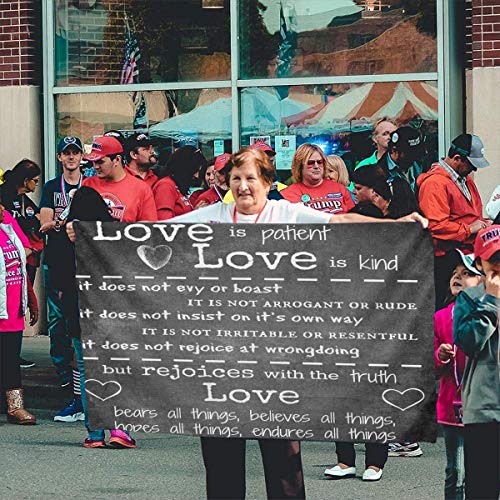 Love is patient
Love is kind
it does not evy or boast
IT IS NOT ARROGANT OR RUDE
it does not insist on it's own way
IT IS NOT IRRITABLE OR RESENTFUL
it does not rejoice at wrongdoing
but rejoices with the truth
Love
bears all things, believes all things,
hopes all things, endures all things
Trump
TRUMP